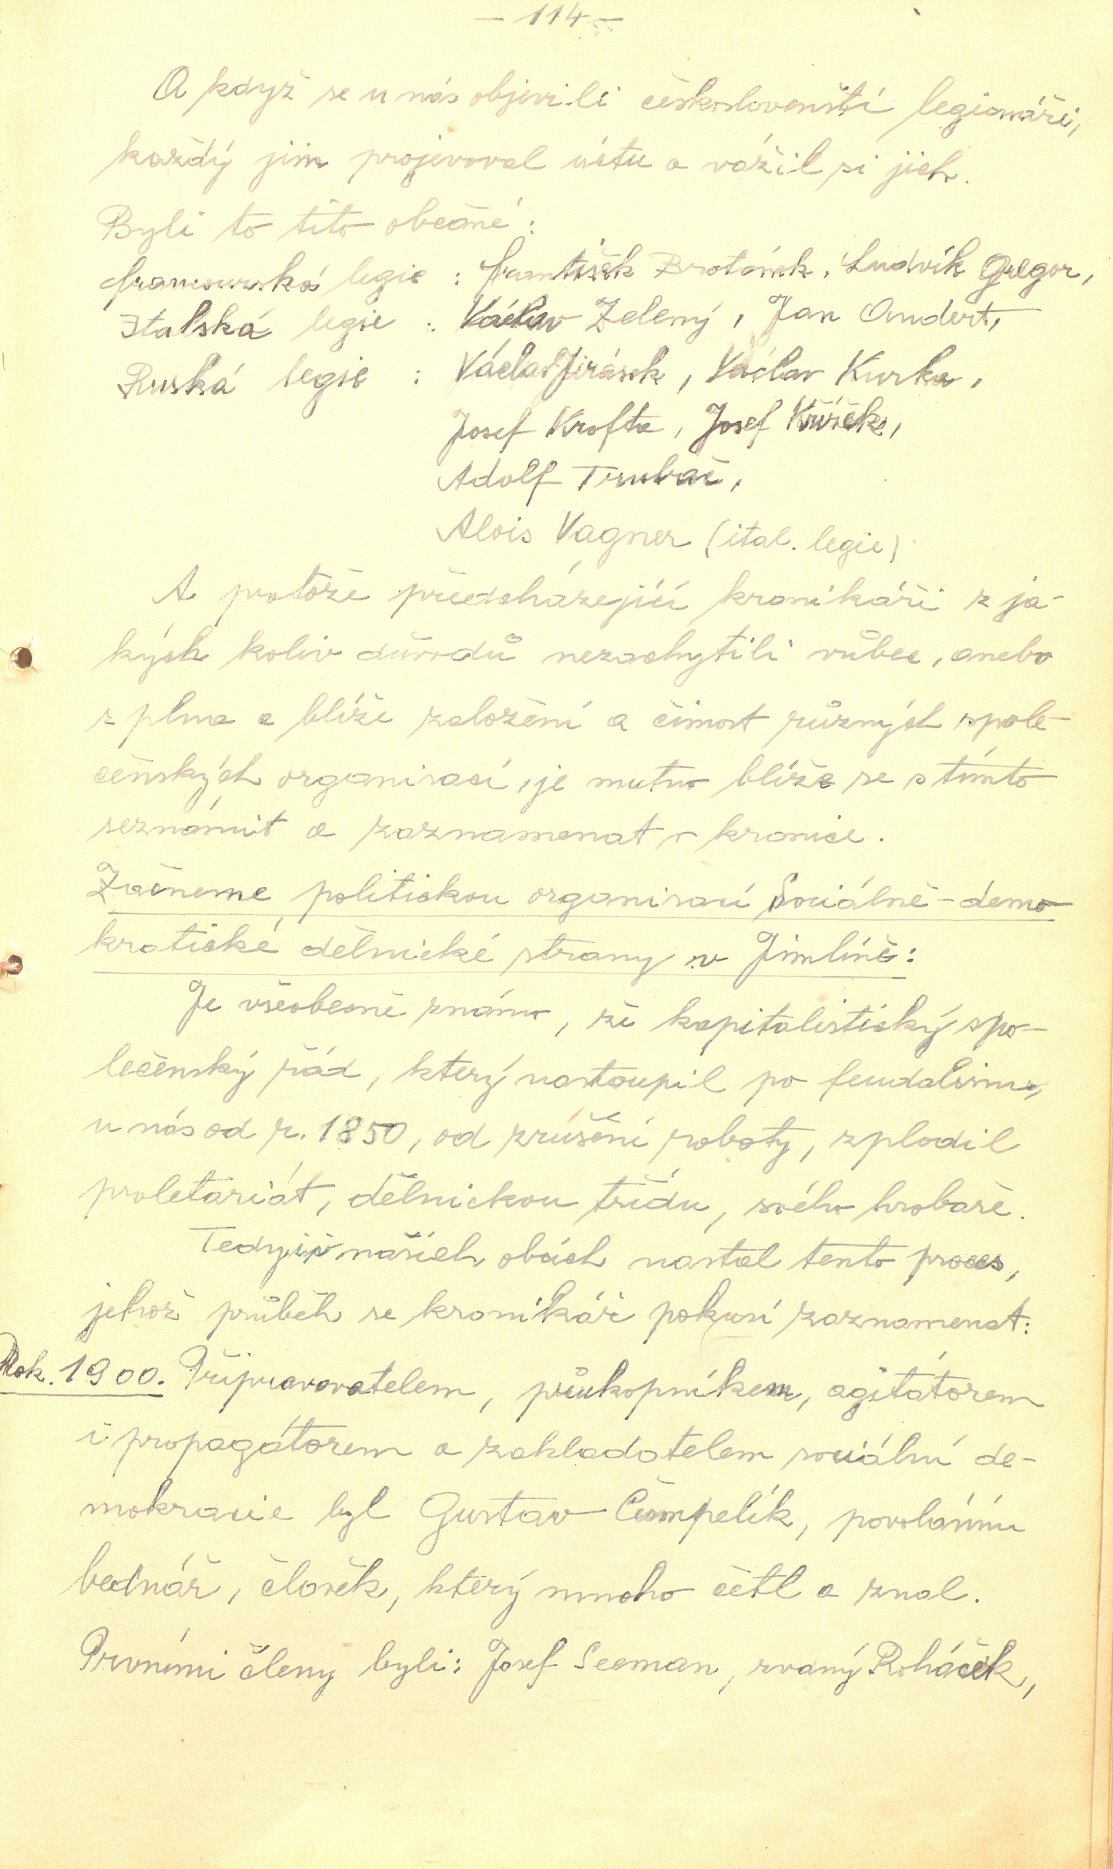 - 114 -
A když se u nás objevili českoslovenští legionáři,
každý jim projevoval úctu a vážil si jich.
Byli to tito občané:
francouzská legie : František Brotánek, Ludvík Gregor,
Italská legie : Václav Zelený, Jan Andert,
Ruská legie : Václav Jirásek, Václav Kurka,
Josef Krofta, Josef Křížek,
Adolf Trubač,
Alois Vagner (ital. legie)
A protože předcházející kronikáři z ja-
kých koliv důvodů nezachytili vůbec, anebo
z plna a blíže založení a činost různých spole-
čenských organisací, je nutno blíže se s tímto
seznámit a zaznamenat v kronice.
Začneme politickou organisací Sociálně-demo
kratické dělnické strany v Jimlíně:
Je všeobecně známo, že kapitalistický spo-
lečenský řád, který nastoupil po feudalismu,
u nás od r. 1850, od zrušení roboty, zplodil
proletariát, dělnickou třídu, svého hrobaře.
Tedy i v našich obcích nastal tento proces,
jehož průběh se kronikář pokusí zaznamenat:
Rok. 1900. Připravovatelem, průkopníkem, agitátorem
i propagátorem a zakladatelem sociální de-
mokracie byl Gustav Čumpelík, povoláním
bednář, člověk, který mnoho četl a znal.
Prvními členy byli: Josef Seeman, zvaný Roháček,